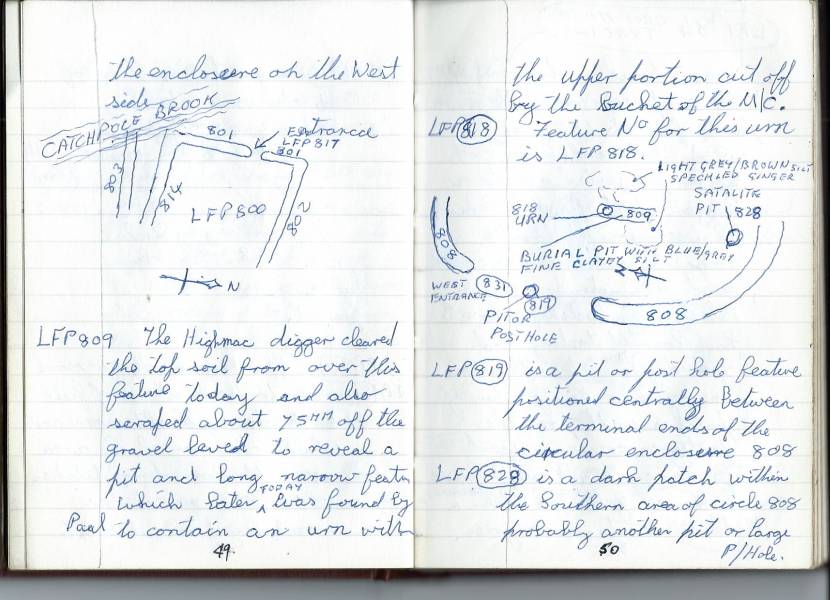 the enclosure on the West
side
CATCHPOLE BROOK
801
Entrance
LFP 817
801
803
814
LFP 800
802
N
LFP 809 The Highmac digger cleared
the top soil from over this
feature today and also
scraped about 75MM off the
gravel level to reveal a
pit and long narrow featu
which later TODAY was found by
Paul to contain an urn with
49
the upper portion cut off
by the Bucket of the M/C.
LFP 818 Feature No for this urn
is LFP 818.
LIGHT GREY/BROWN SILT
SPECKLED GINGER
SATALITE
PIT 828
818
URN
809
808
BURIAL PIT WITH BLUE/GRAY
FINE CLAYEY SILT
WEST
ENTRANCE
831
819
PIT OR
POST HOLE
808
LFP 819 is a pit or post hole feature
positioned centrally between
the terminal ends of the
circular enclosure 808
LFP 828 is a dark patch within
the Southern area of circle 808
probably another pit or large
P/Hole.
50